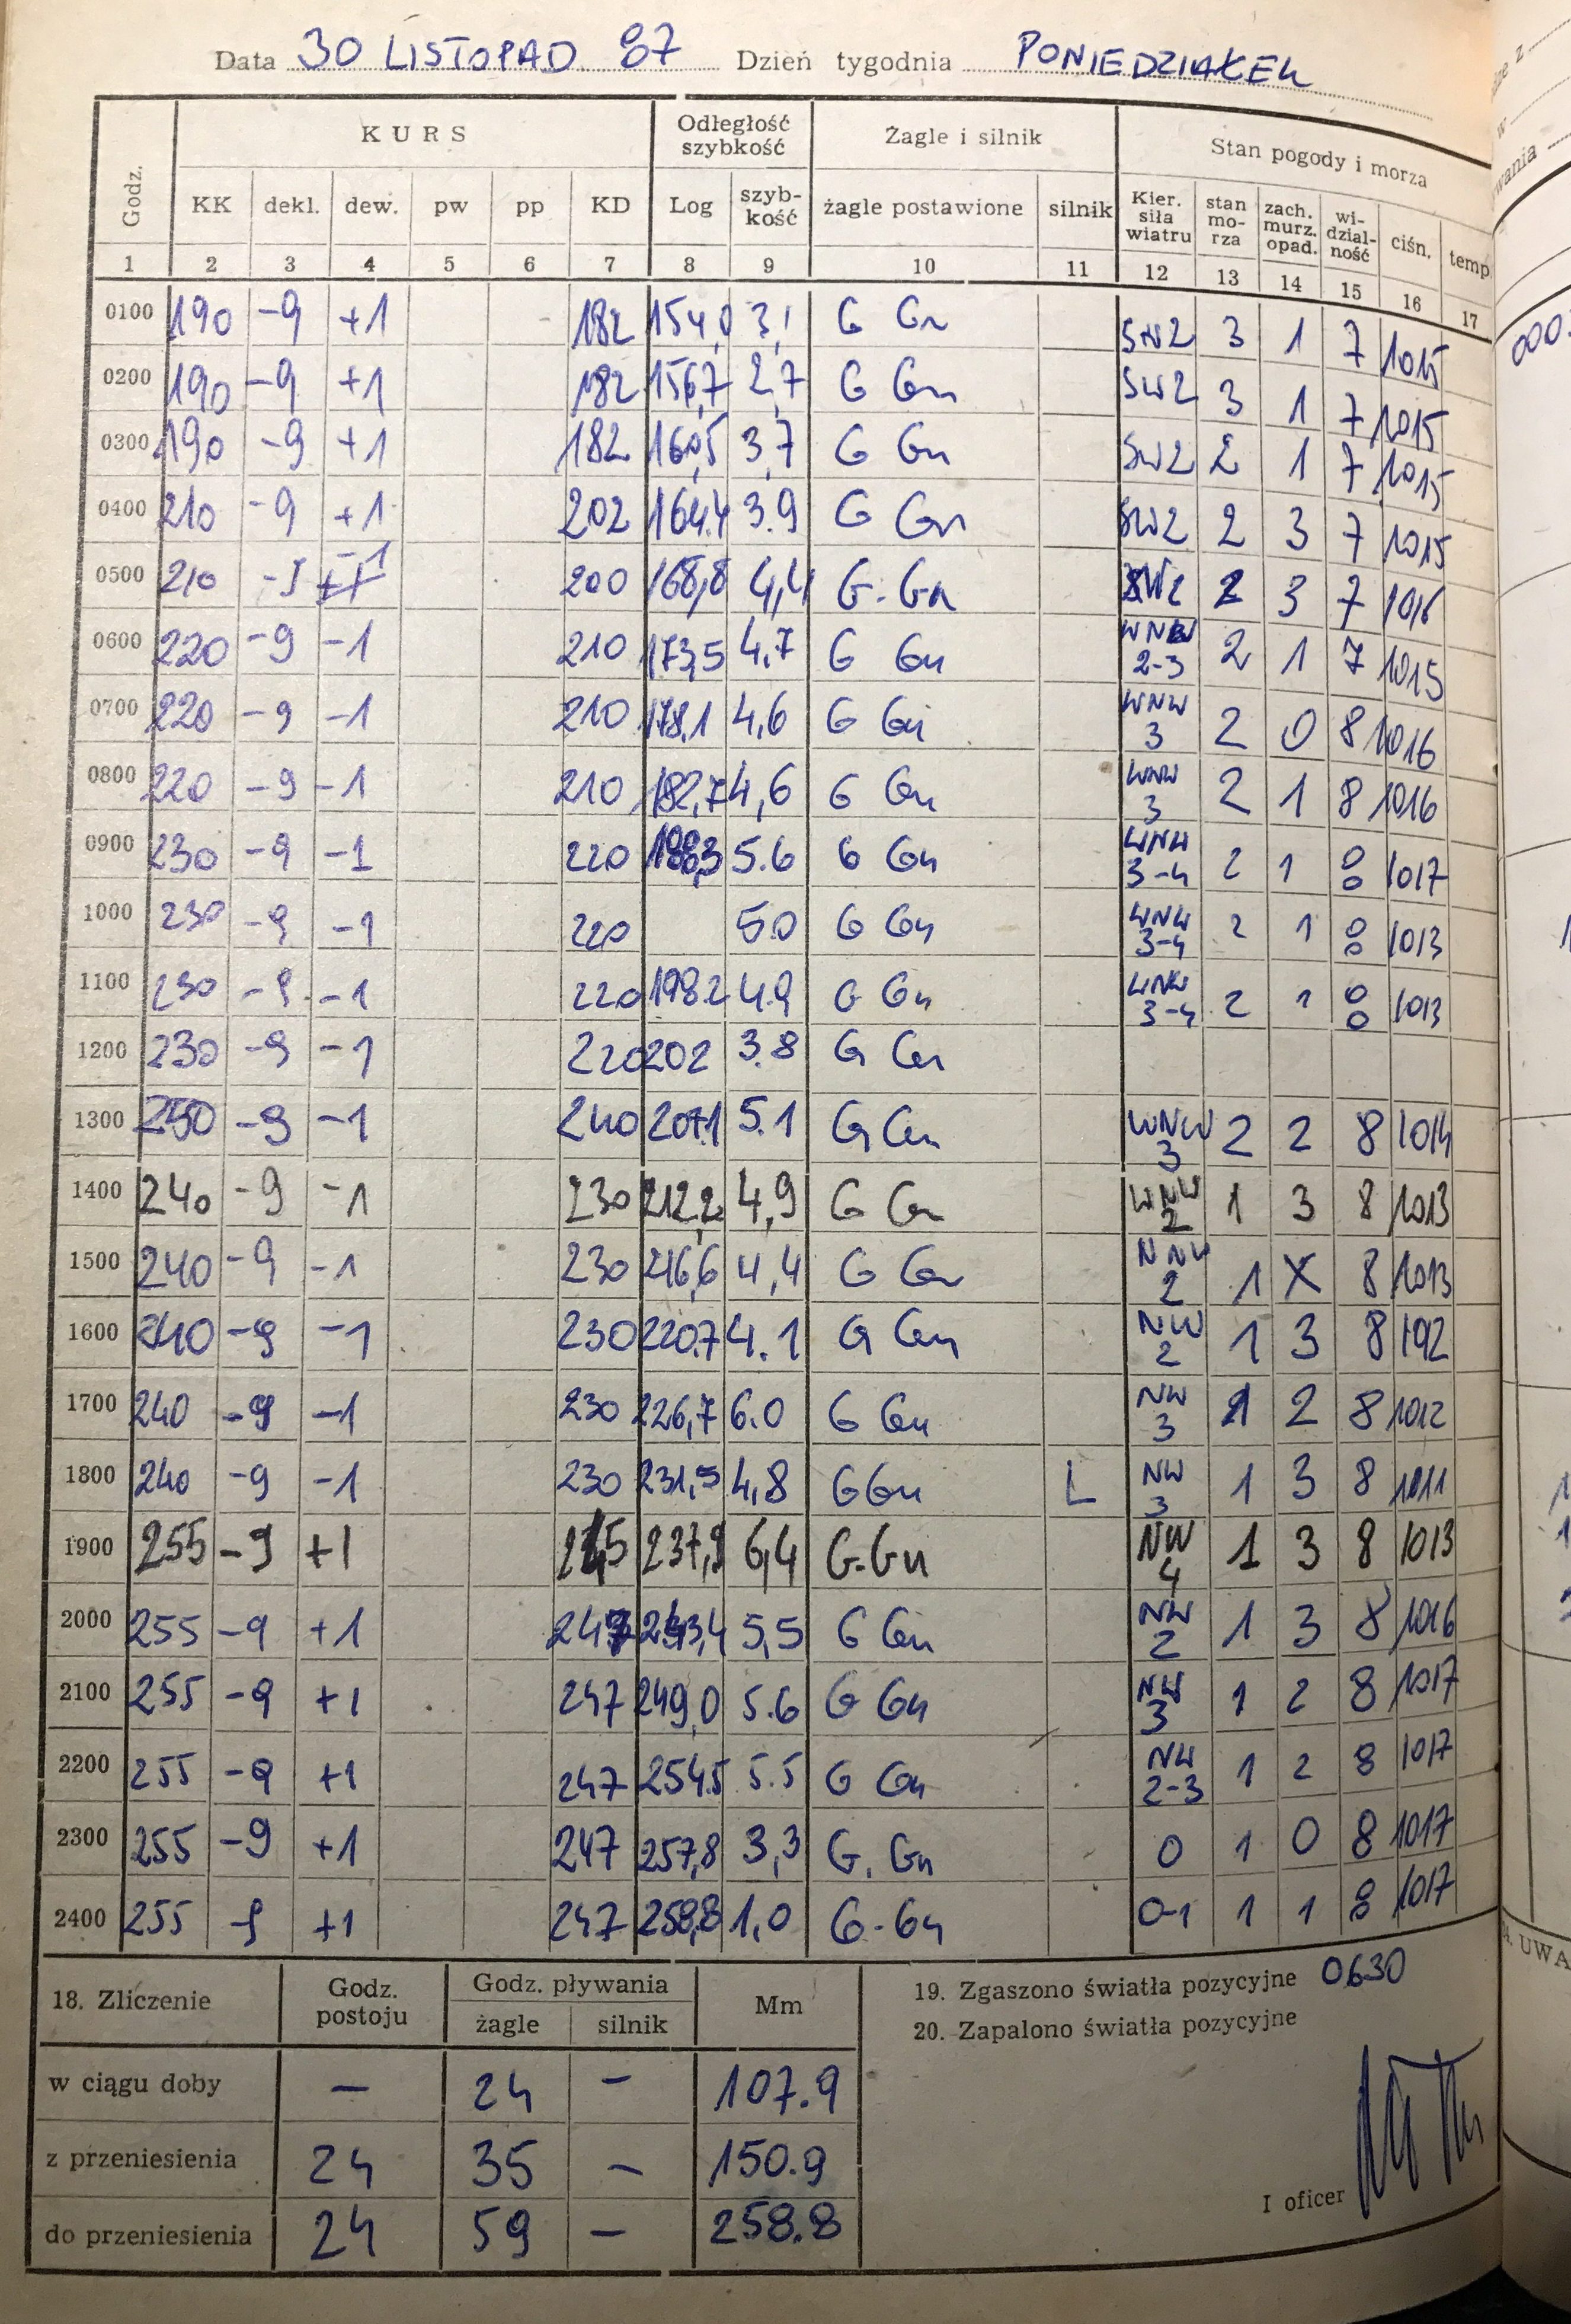 Data 30 LISTOPAD 87 Dzień tygodnia PONIEDZIAŁEK
Godz. KURS Odległość szybkość Żagle i silnik Stan pogody i morza
KK dekl. dew. pw pp KD Log szyb-kość żagle postawione silnik Kier. siła wiatru stan mo-rza zach. murz. opad. wi-dzial-ność ciśn. temp
1 2 3 4 5 6 7 8 9 10 11 12 13 14 15 16 17
0100 190 -9 +1 182 154,0 3,1 G Gn SW2 3 1 7 1015
0200 190 -9 +1 182 156,7 2,7 G Gn SW2 3 1 7 1015
0300 190 -9 +1 182 160,5 3,7 G Gn SW2 2 1 7 1015
0400 210 -9 +1 202 164.4 3.9 G Gn SW2 2 3 7 1015
0500 210 -9 -1 200 168,8 4,4 G. Gn 2 3 7 1016
0600 220 -9 -1 210 173,5 4,7 G Gn WNW 2-3 2 1 7 1015
0700 220 -9 -1 210 178,1 4,6 G Gn WNW 3 2 0 8 1016
0800 220 -9 -1 210 182,7 4,6 G Gn WNW 3 2 1 8 1016
0900 230 -9 -1 220 188,3 5.6 G Gn WNW 3-4 2 1 8 1017
1000 230 -9 -1 220 5.0 G Gn WNW 3-4 2 1 8 1013
1100 230 -9 -1 220 198.2 4.9 G Gn WNW 3-4 2 1 8 1013
1200 230 -9 -1 220 202 3.8 G Gn
1300 250 -9 -1 240 207.1 5.1 G Gn WNW 3 2 2 8 1014
1400 240 -9 -1 230 212,2 4,9 G Gn WNW 2 1 3 8 1013
1500 240 -9 -1 230 216,6 4,4 G Gn NNW 2 1 X 8 1013
1600 240 -9 -1 230 220.7 4.1 G Gn NW 2 1 3 8 192
1700 240 -9 -1 230 226,7 6.0 G Gn NW 3 1 2 8 1012
1800 240 -9 -1 230 231,5 4,8 G Gn L NW 3 1 3 8 1011
1900 255 -9 +1 237,9 6,4 G.Gn NW 4 1 3 8 1013
2000 255 -9 +1 247 243,4 5,5 G Gn NW 2 1 3 8 1016
2100 255 -9 +1 247 249,0 5.6 G Gn NW 3 1 2 8 1017
2200 255 -9 +1 247 254.5 5.5 G Gn NW 2-3 1 2 8 1017
2300 255 -9 +1 247 257,8 3,3 G. Gn 0 1 0 8 1017
2400 255 -9 +1 247 258,8 1,0 G-Gn 0-1 1 1 8 1017
18. Zliczenie Godz. postoju Godz. pływania żagle silnik Mm
w ciągu doby — 24 — 107.9
z przeniesienia 24 35 — 150.9
do przeniesienia 24 59 — 258.8
19. Zgaszono światła pozycyjne 0630
20. Zapalono światła pozycyjne
I oficer